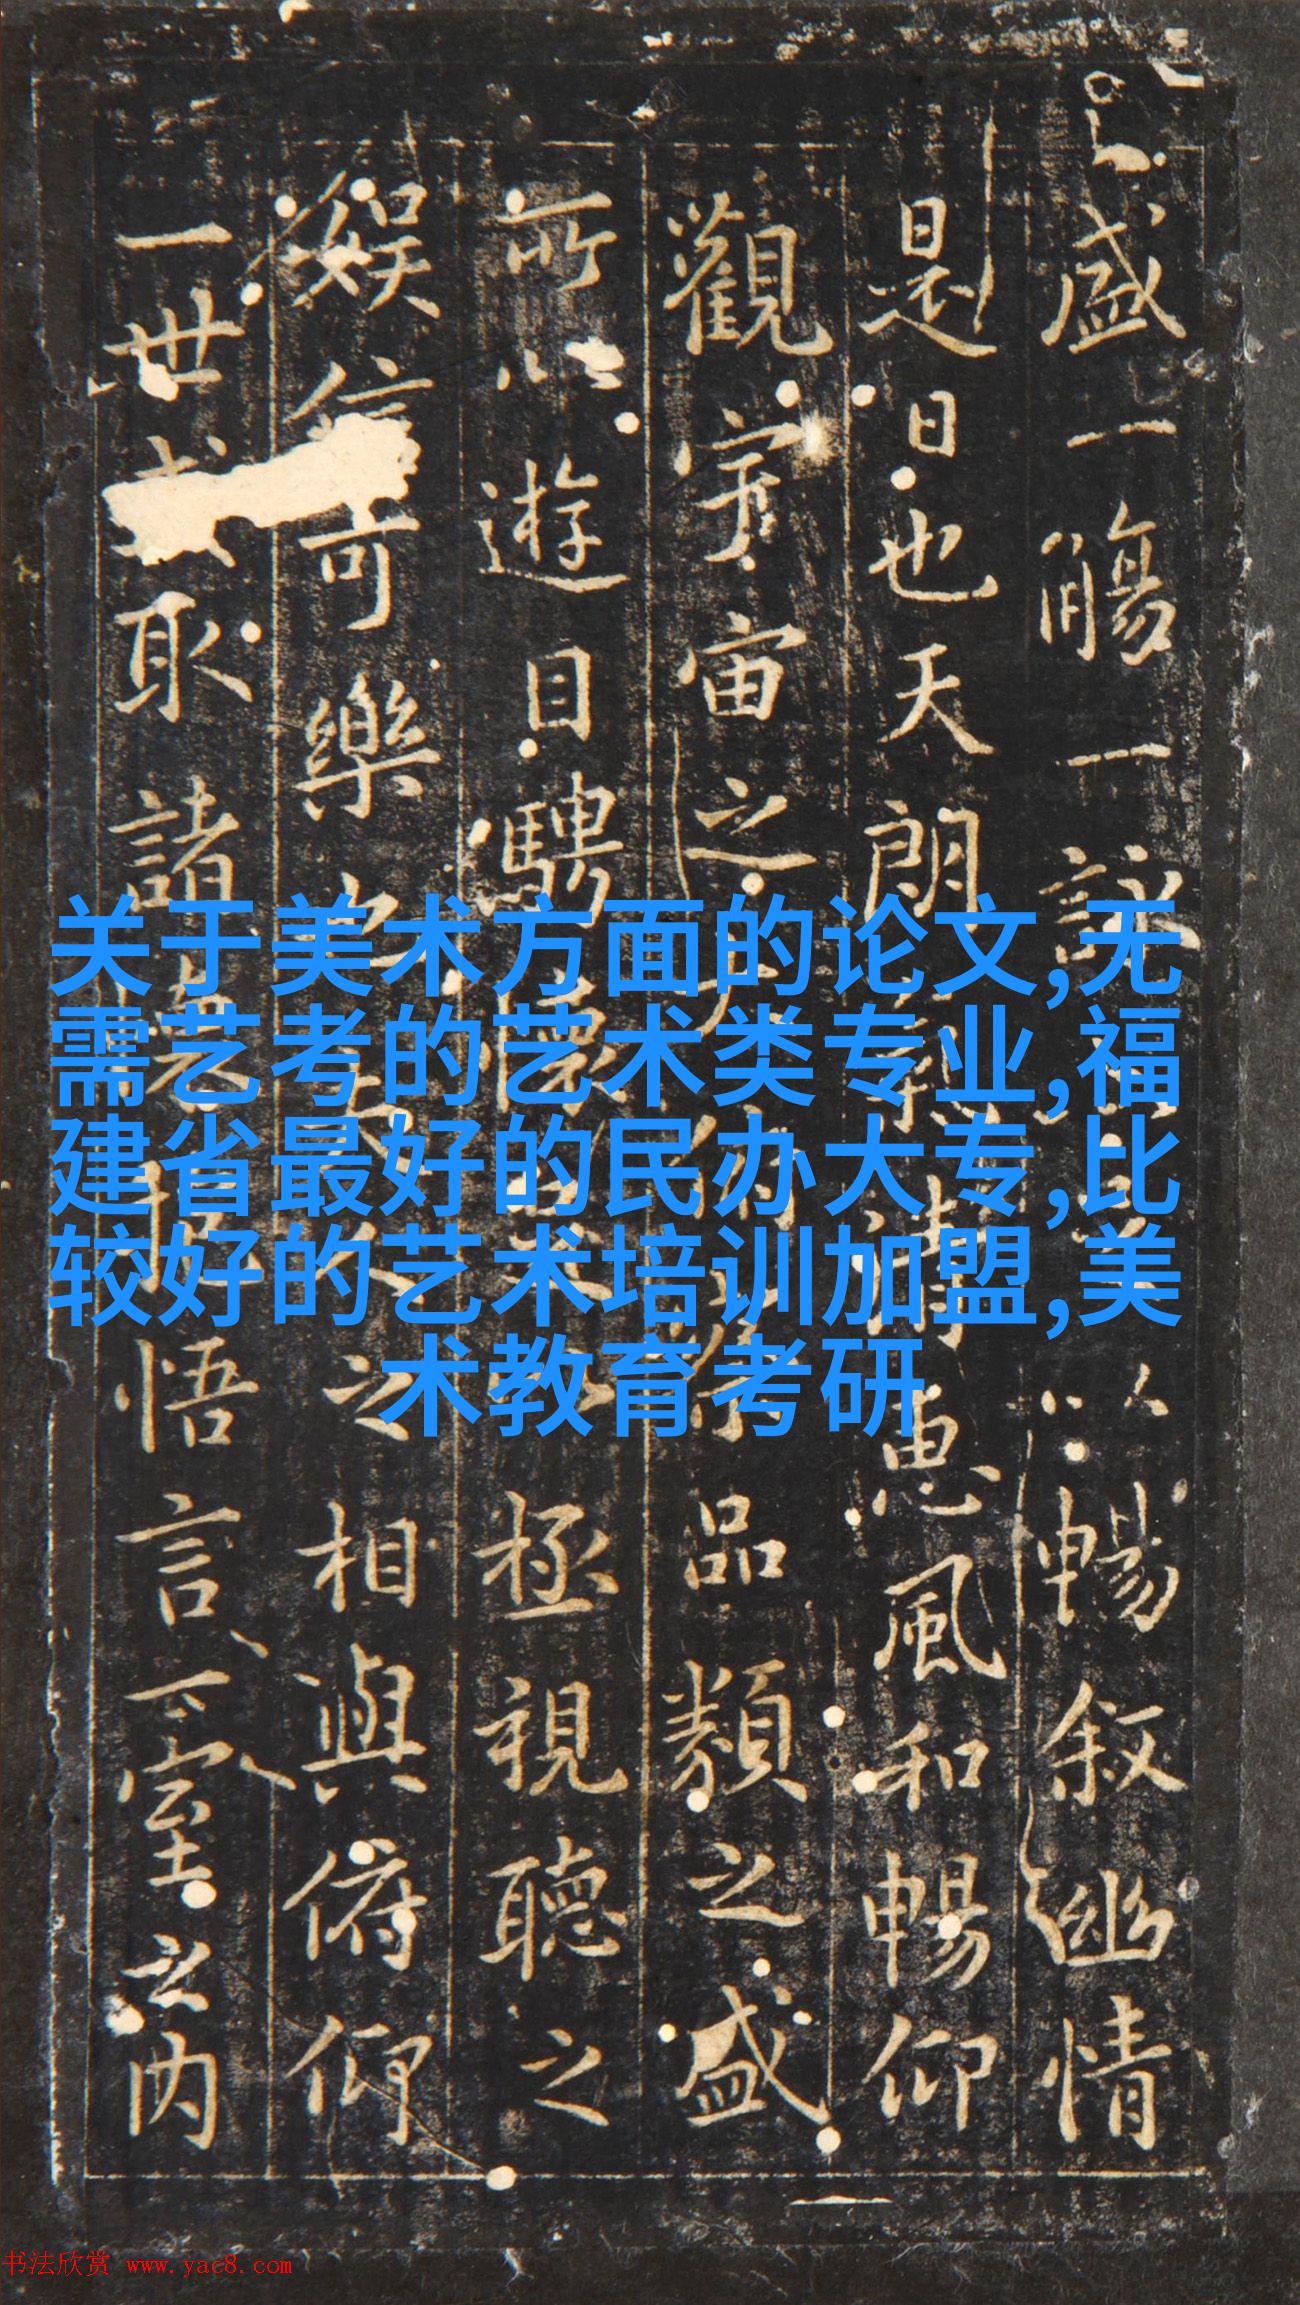 盛一觴一詠以暢叙幽情
是日也天朗氣清惠風和暢仰
觀宇宙之大俯察品類之盛
所以遊目騁懷極視聽之
娱信可樂也夫人之相與俯仰
一世或取諸懷抱悟言一室之内
关于美术方面的论文,无
需艺考的艺术类专业,福
建省最好的民办大专,比
较好的艺术培训加盟,美
术教育考研
书法欣赏 www.yac8.com